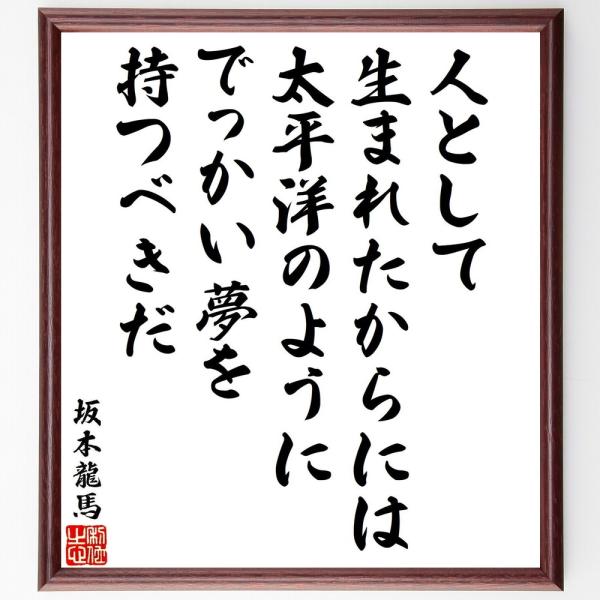 人として
生まれたからには
太平洋のように
でっかい夢を
持つべきだ
坂本龍馬